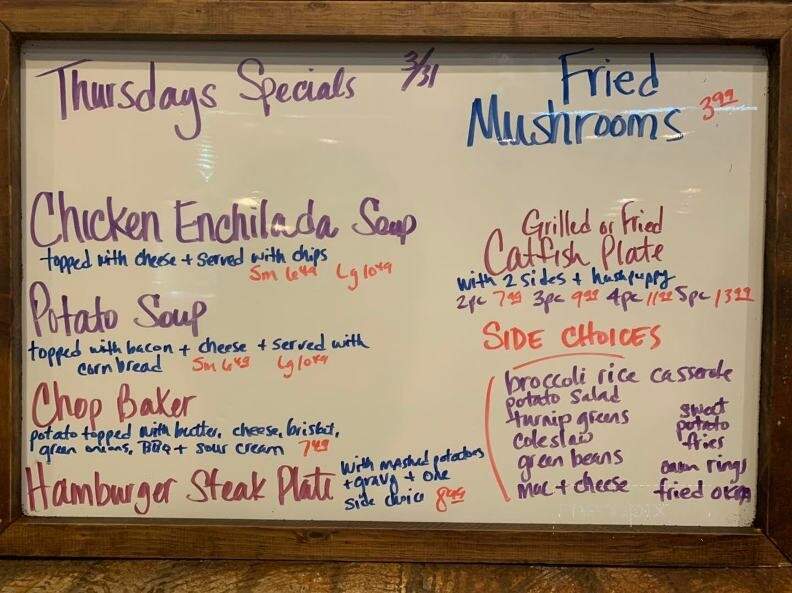 Thursdays Specials 3/31
Chicken Enchilada Soup
topped with cheese + served with chips
Sm 6.49 Lg 10.49
Potato Soup
topped with bacon + cheese + served with
corn bread Sm 6.49 Lg 10.49
Chop Baker
potato topped with butter, cheese, brisket,
green onions, BBQ + sour cream 7.49
Hamburger Steak Plate
with mashed potatoes
+ gravy + one
side choice 8.99
Fried
Mushrooms 3.99
Grilled or Fried
Catfish Plate
with 2 sides + hushpuppy
2pc 7.99 3pc 9.99 4pc 11.99 5pc 13.99
SIDE CHOICES
broccoli rice casserole
potato salad
turnip greens
coleslaw
green beans
mac + cheese
sweet
potato
fries
onion rings
fried okra